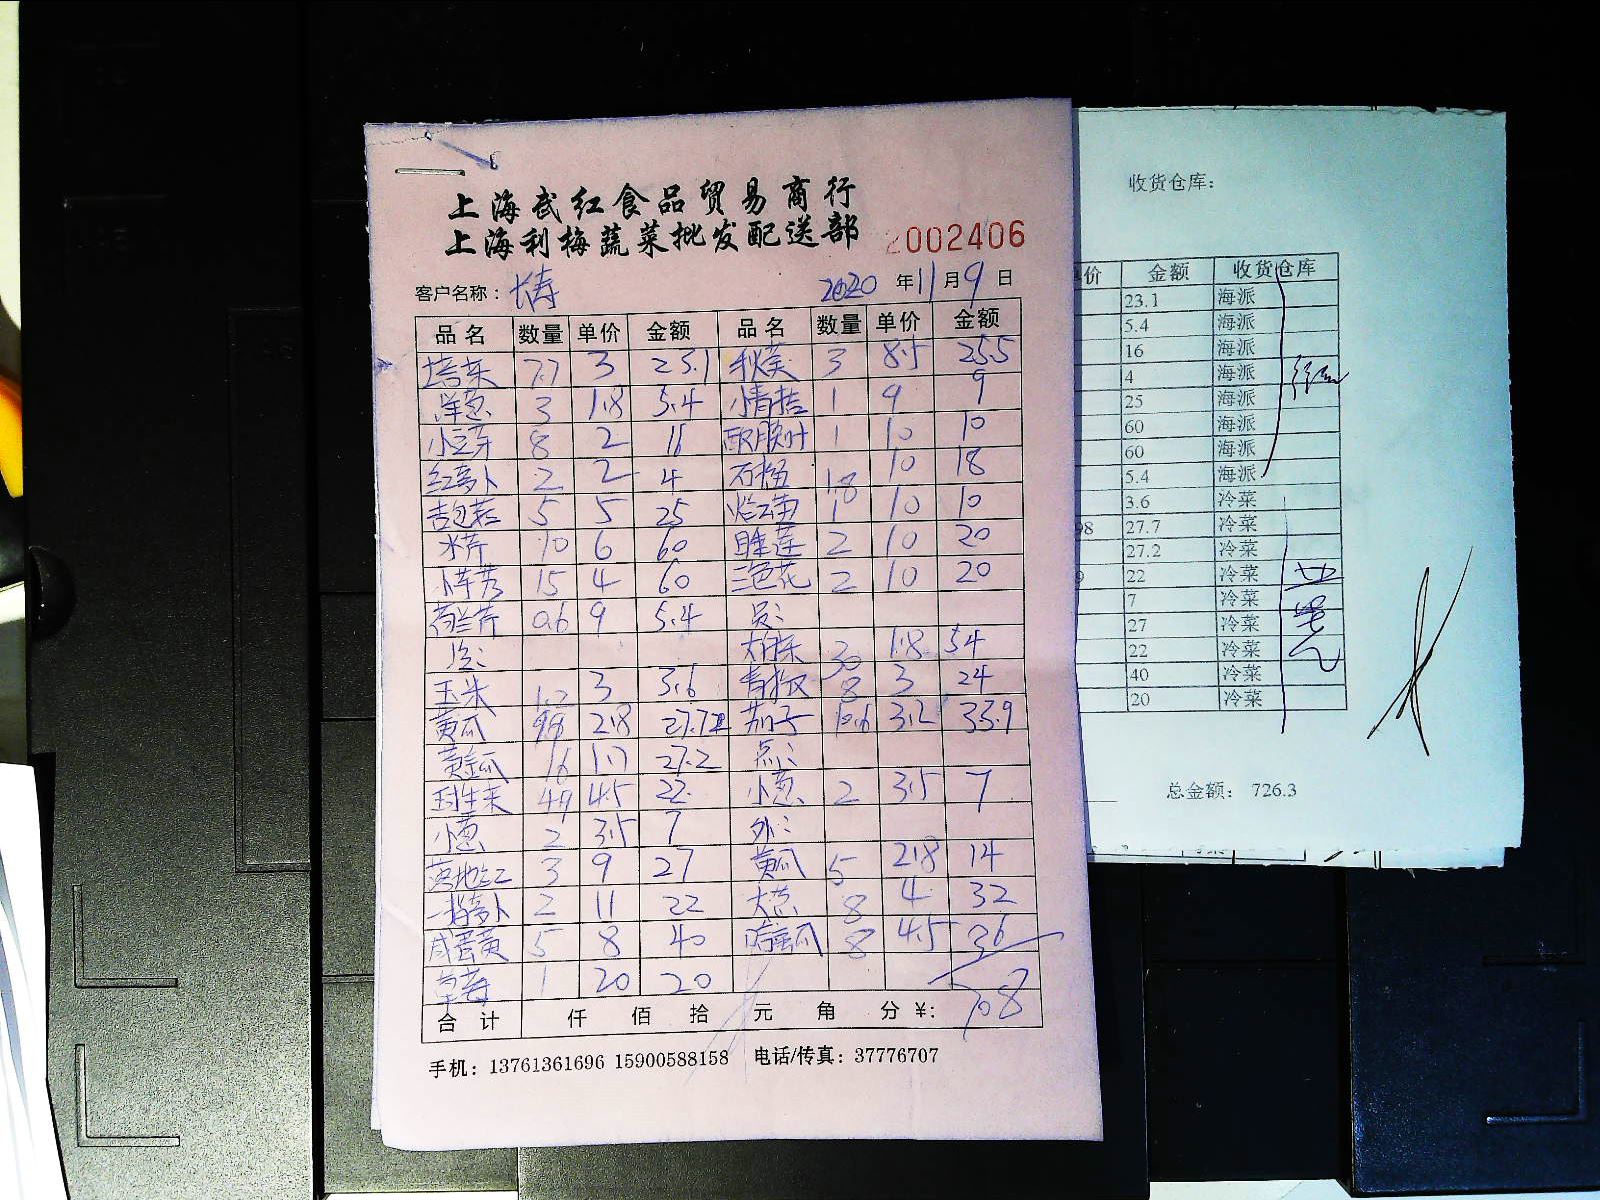 上海武红食品贸易商行
上海利梅蔬菜批发配送部 2002406
客户名称: 长寿 2020年11月9日
品名 数量 单价 金额 品名 数量 单价 金额
塔菜 7.7 3 23.1 秋葵 3 8.5 25.5
洋葱 3 1.8 5.4 小青桔 1 9 9
小豆芽 8 2 16 1 10 10
红萝卜 2 2 4 石榴 1.8 10 18
杏包菇 5 5 25 1 10 10
水芹 10 6 60 睡莲 2 10 20
15 4 60 三色花 2 10 20
荷兰芹 0.6 9 5.4 员:
冷: 大白菜 30 1.8 54
玉米 1.2 3 3.6 青椒 8 3 24
黄瓜 9.9 2.8 27.72 茄子 10.6 3.2 33.9
黄金瓜 16 1.7 27.2 点:
球生菜 4.9 4.5 22 小葱 2 3.5 7
小葱 2 3.5 7 外:
落地红 3 9 27 黄瓜 5 2.8 14
萝卜 2 11 22 大葱 8 4 32
咸蛋黄 5 8 40 哈密瓜 8 4.5 36
草莓 1 20 20
合计 仟 佰 拾 元 角 分 ¥: 708
手机: 13761361696 15900588158 电话/传真: 37776707
收货仓库:
价 金额 收货仓库
23.1 海派
5.4 海派
16 海派
4 海派
25 海派
60 海派
60 海派
5.4 海派
3.6 冷菜
98 27.7 冷菜
27.2 冷菜
9 22 冷菜
7 冷菜
27 冷菜
22 冷菜
40 冷菜
20 冷菜
总金额: 726.3